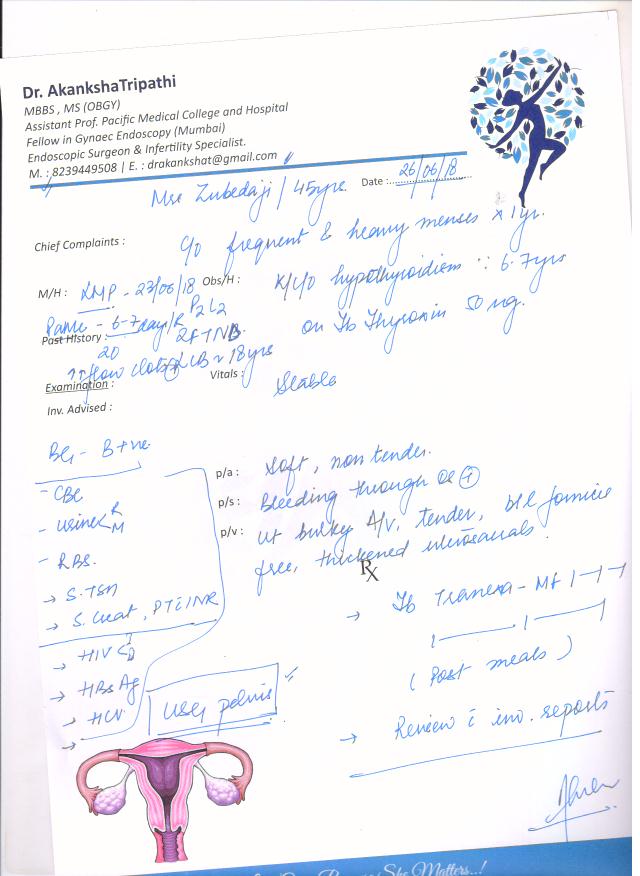 Dr. AkankshaTripathi
MBBS , MS (OBGY)
Assistant Prof. Pacific Medical College and Hospital
Fellow in Gynaec Endoscopy (Mumbai)
Endoscopic Surgeon & Infertility Specialist.
M. : 8239449508 | E. : drakankshat@gmail.com
Mrs Zubedaji / 45yrs. Date : 26/06/18
Chief Complaints : C/o frequent & heavy menses x 1yr.
M/H : LMP - 23/06/18 Obs/H : K/C/O hypothyroidism : 6-7yrs
6-7days/R P2L2 on Tb Thyroxin 50 ug.
Past History : 20 2FTNB.
flow clots LCB ~ 18yrs
Examination : Vitals : Stable
Inv. Advised :
BG - B+ve
- CBC
- urine R
M
- RBS.
→ S. TSH
→ S. Creat, PTINR
→ HIV
→ HBsAg
→ HCV
→
USG pelvis
p/a : Soft, non tender.
p/s : Bleeding through OS +
p/v : ut bulky A/V, tender, b/l fornices
free, thickened uterosacrals.
Rx
→ Tb Tranexa-MF 1-1-1
(Post meals)
→ Review c inv. reports
She Matters..!